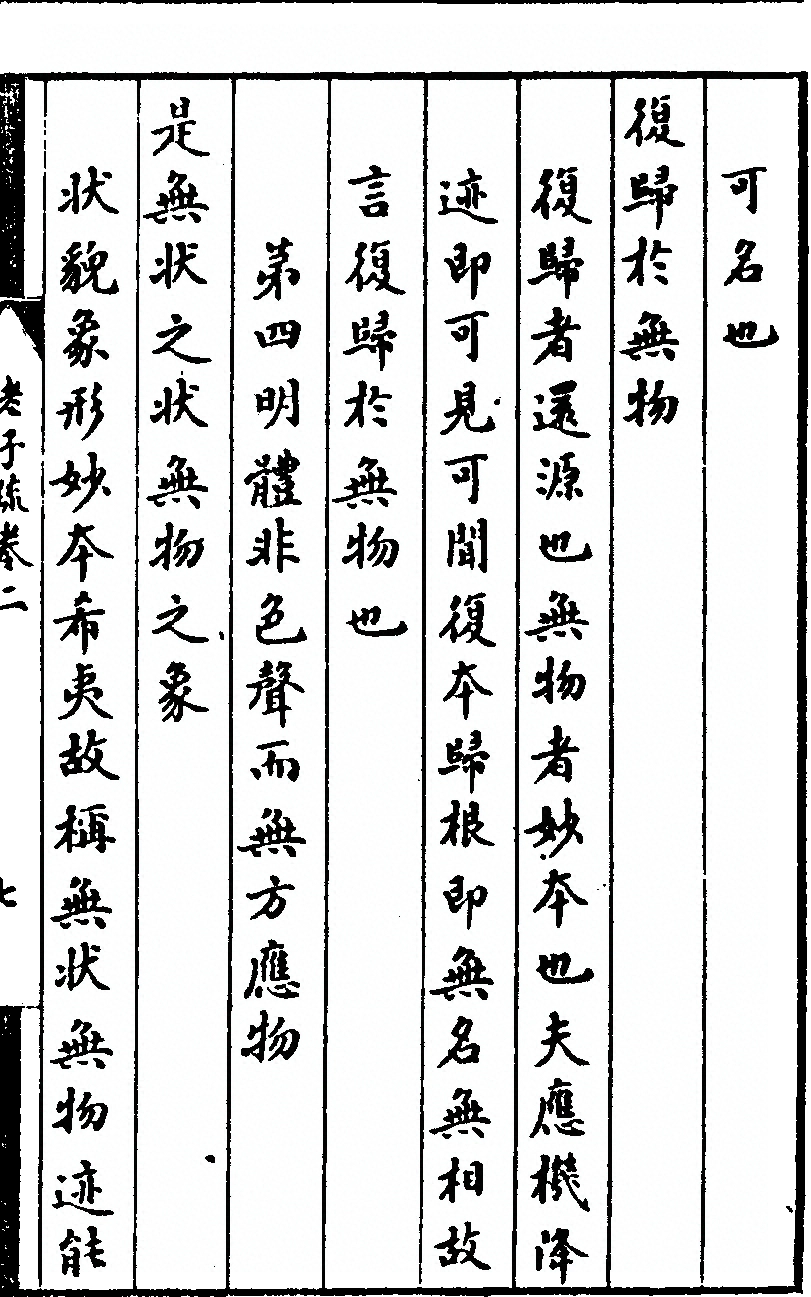 可名也
復歸於無物
復歸者還源也無物者妙本也夫應機降
迹即可見可聞復本歸根即無名無相故
言復歸於無物也
第四明體非色聲而無方應物
是無状之状無物之象
状貌象形妙本希夷故稱無状無物迹能
老子疏卷二
七